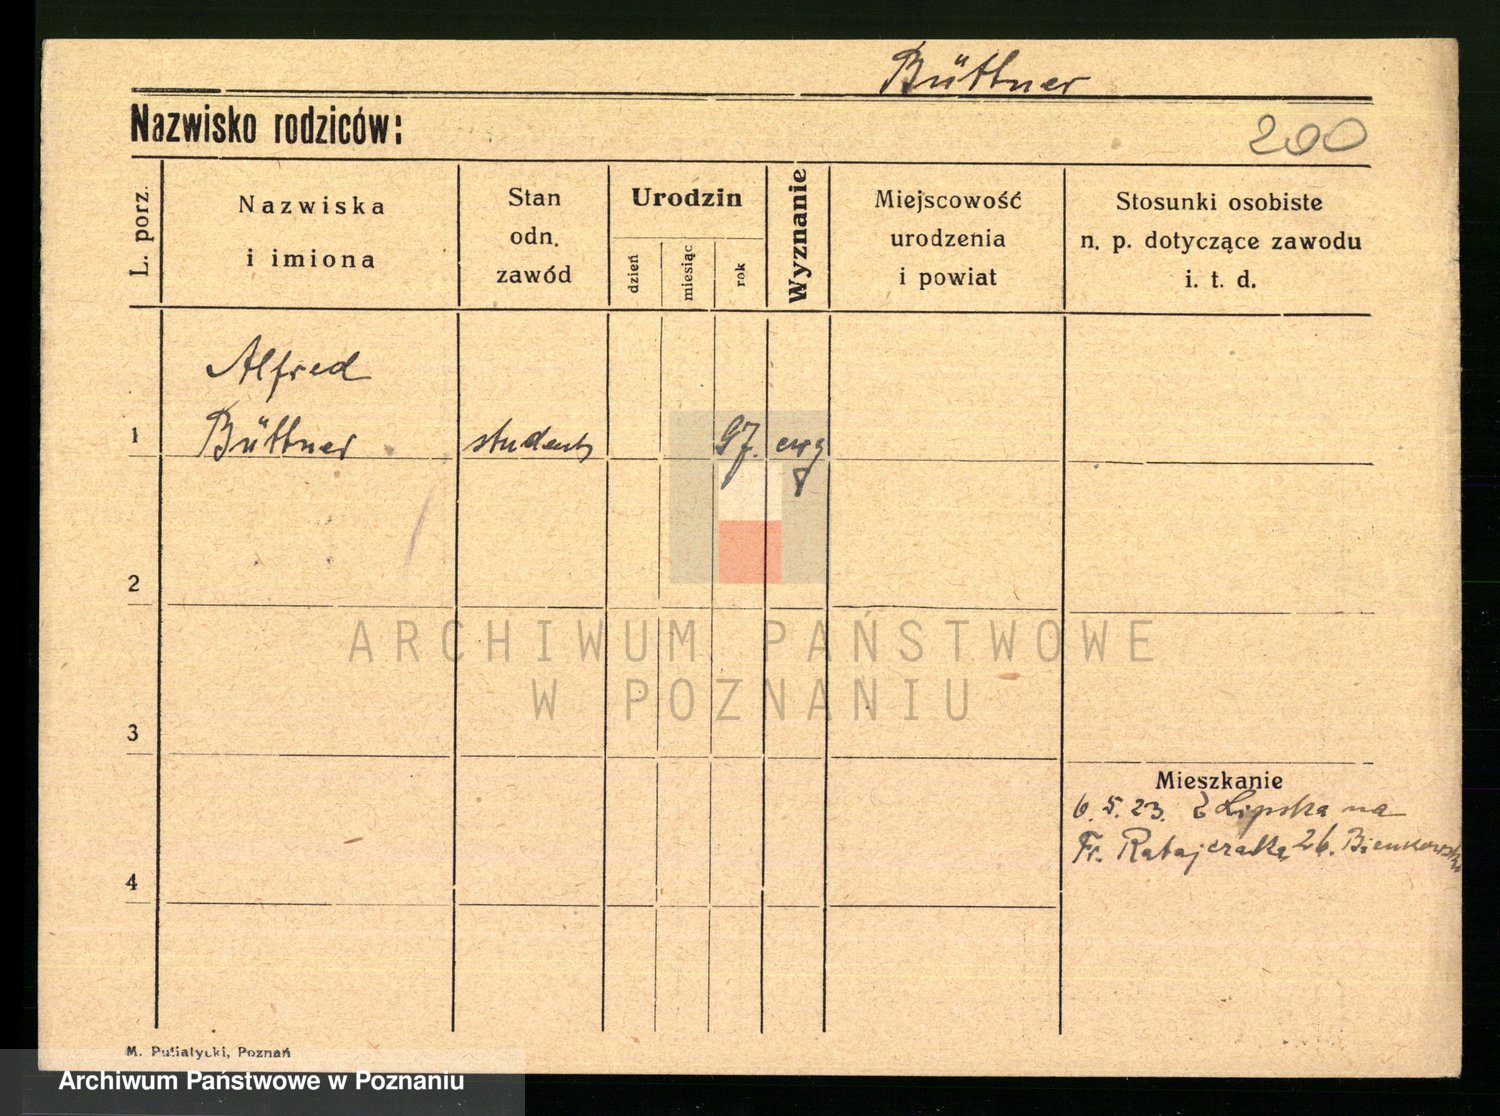 Büttner
Nazwisko rodziców:
200
L. porz.
Nazwiska
i imiona
Stan
odn.
zawód
Urodzin
dzień
miesiąc
rok
Wyznanie
Miejscowość
urodzenia
i powiat
Stosunki osobiste
n. p. dotyczące zawodu
i. t. d.
Alfred
1 Büttner student 97. ewg
2
ARCHIWUM PAŃSTWOWE
W POZNANIU
3
Mieszkanie
6. 5. 23. Z Lipska na
Fr. Ratajczaka 26. Bienkowska
4
M. Putiatycki, Poznań
Archiwum Państwowe w Poznaniu